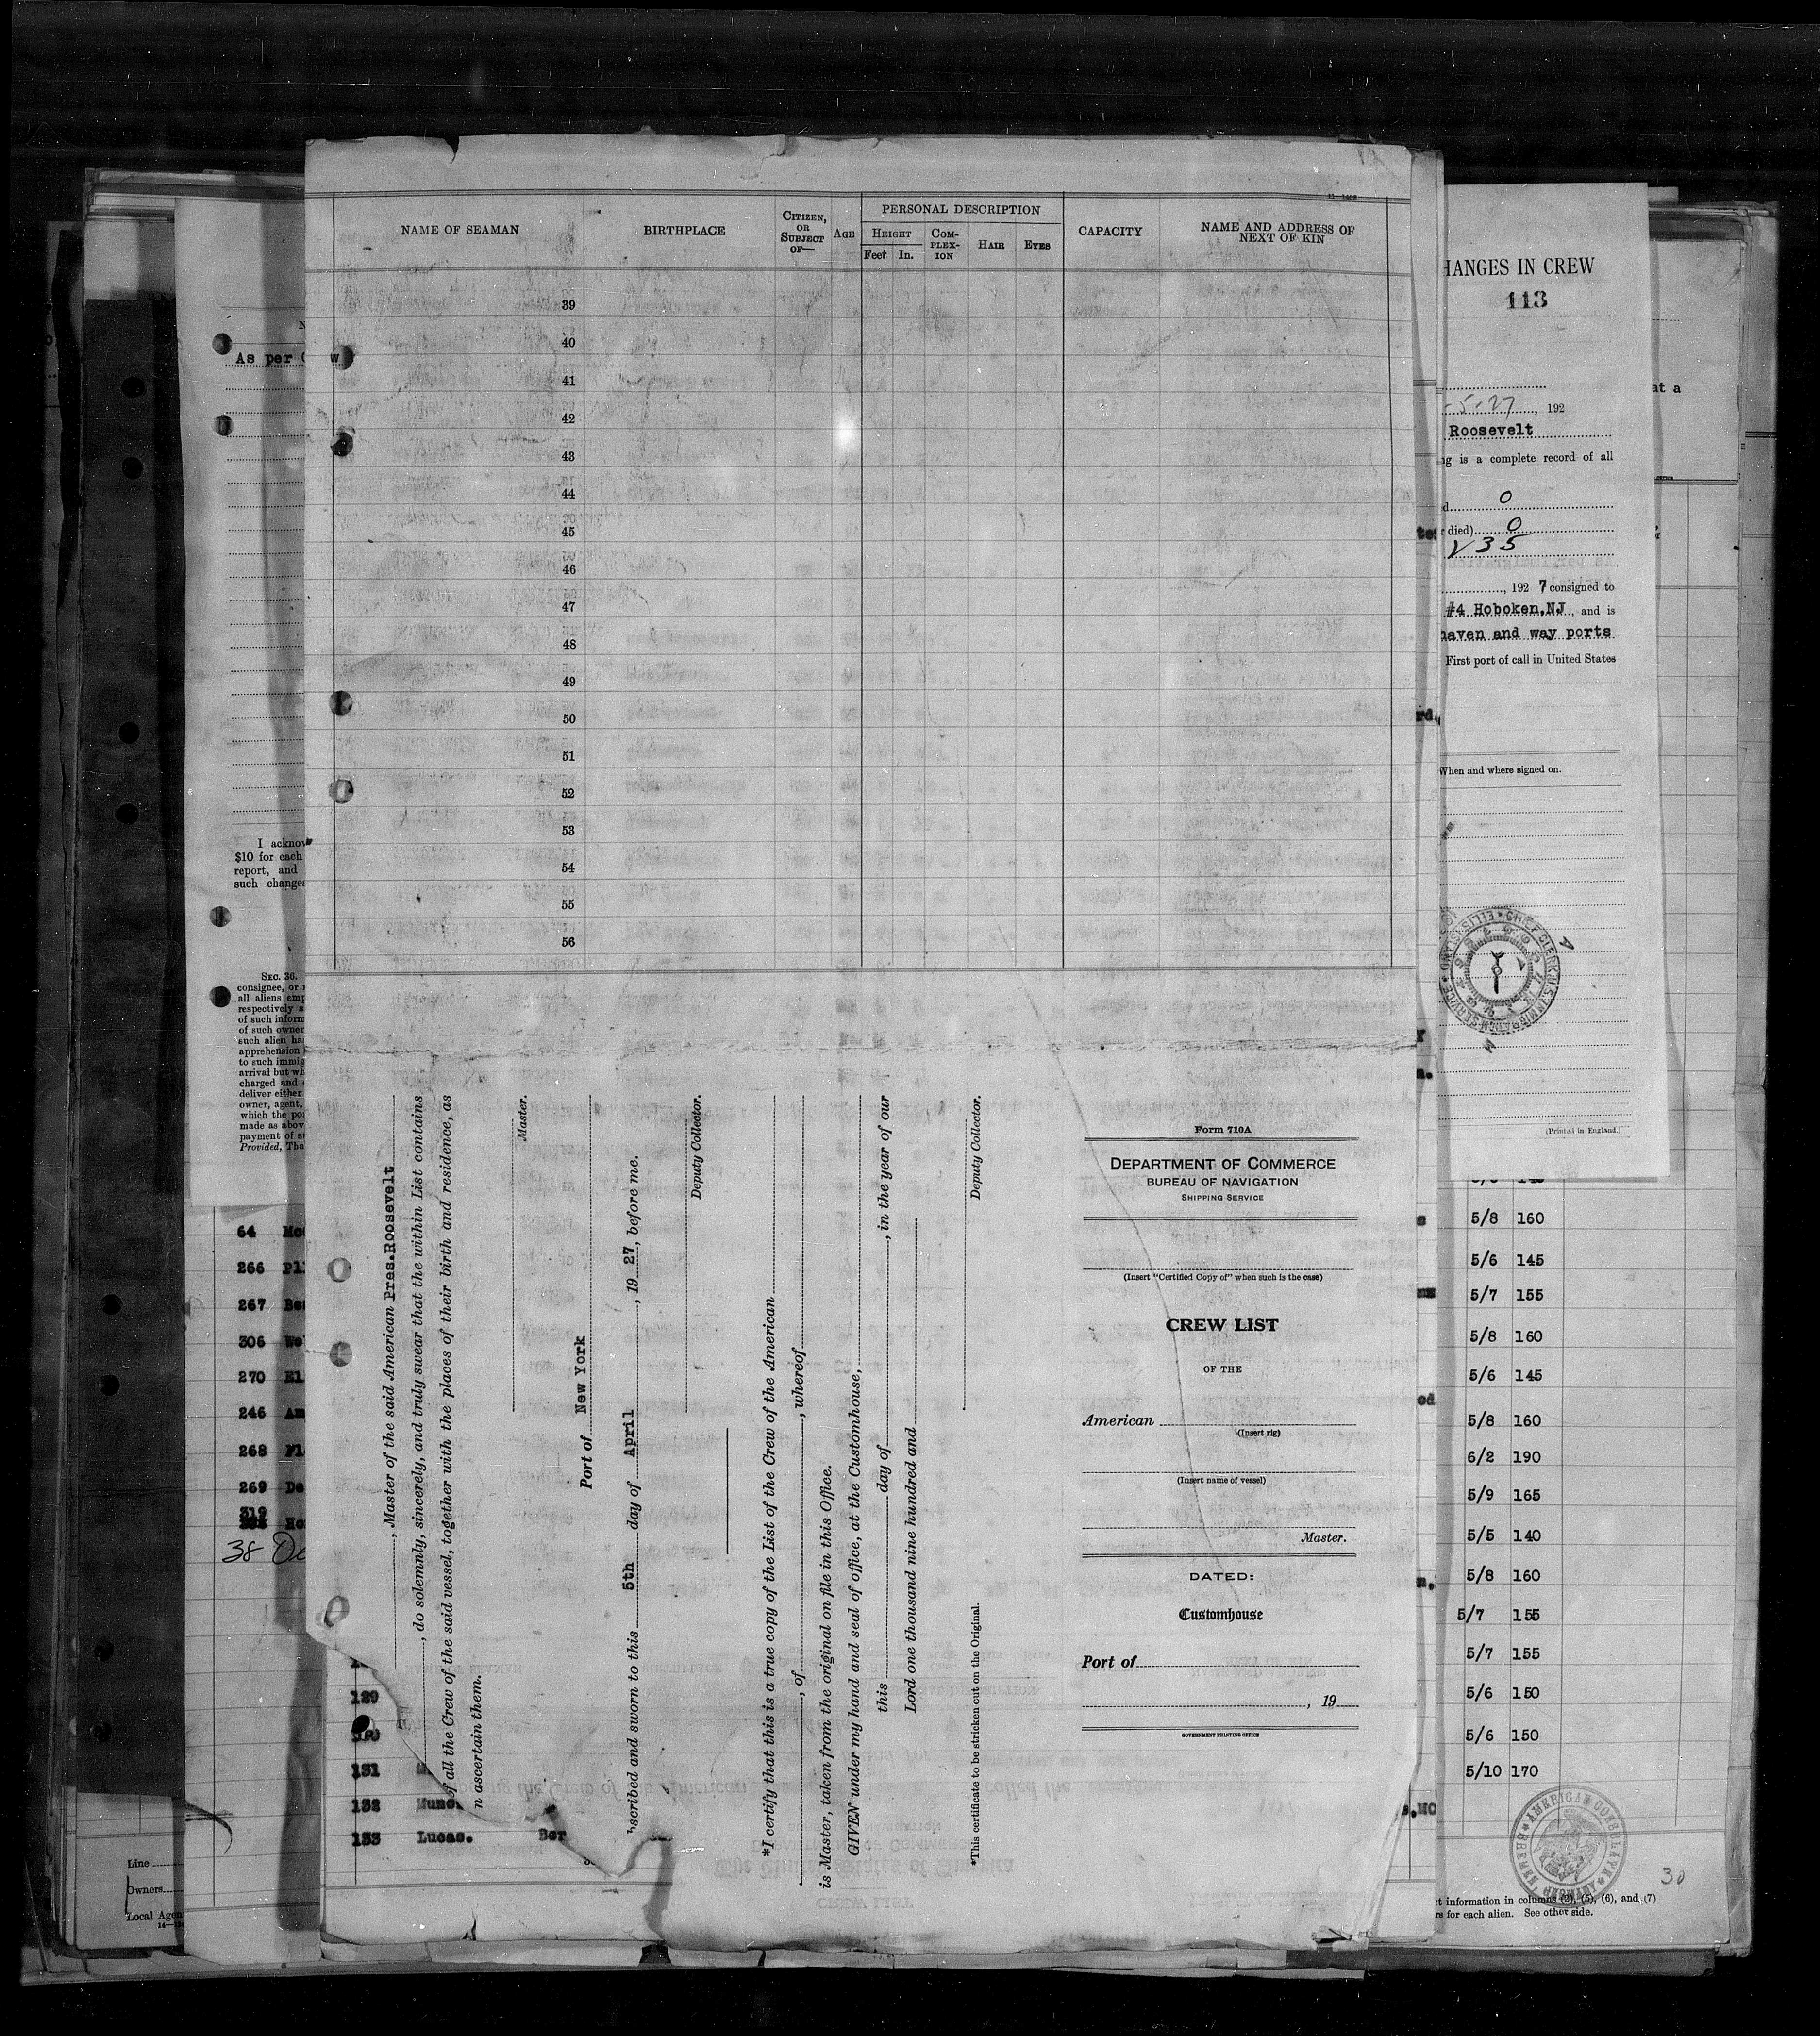 15—1408
NAME OF SEAMAN
BIRTHPLACE
CITIZEN, OR SUBJECT OF—
AGE
PERSONAL DESCRIPTION
HEIGHT
Feet In.
COM-PLEX-ION
HAIR
EYES
CAPACITY
NAME AND ADDRESS OF NEXT OF KIN
39
40
41
42
43
44
45
46
47
48
49
50
51
52
53
54
55
56
, Master of the said American Pres.Roosevelt
, do solemnly, sincerely, and truly swear that the within List contains
of all the Crew of the said vessel, together with the places of their birth and residence, as
n ascertain them.
Master.
Port of New York
bscribed and sworn to this 5th day of April, 19 27, before me.
Deputy Collector.
*I certify that this is a true copy of the List of the Crew of the American
, of , whereof
is Master, taken from the original on file in this Office.
GIVEN under my hand and seal of office, at the Customhouse,
this day of , in the year of our
Lord one thousand nine hundred and
Deputy Collector.
*This certificate to be stricken out on the Original.
Form 710A
DEPARTMENT OF COMMERCE
BUREAU OF NAVIGATION
SHIPPING SERVICE
(Insert "Certified Copy of" when such is the case)
CREW LIST
OF THE
American
(Insert rig)
(Insert name of vessel)
Master.
DATED:
Customhouse
Port of
, 19
GOVERNMENT PRINTING OFFICE
As per C w
I acknow
$10 for each
report, and
such change
SEC. 36.
consignee, or
all aliens emp
respectively s
of such inform
of such owner
such alien ha
apprehension
to such immig
arrival but wh
charged and
deliver either
owner, agent,
which the po
made as abov
payment of s
Provided, Tha
64 Mc
266 Pl
267 Be
306 We
270 El
246 Am
268 Fl
269 De
319 Ho
38 De
129
131 M
132 Mun
133 Lucas. Ber
Line
Owners
Local Agen
HANGES IN CREW
113
at a
-5-27, 192
Roosevelt
ng is a complete record of all
d 0
r died) 0
V35
, 192 7 consigned to
#4 Hoboken,NJ, and is
haven and way ports
First port of call in United States
When and where signed on.
CHIEF CLERK U.S. IMMIGRATION SERVICE • ELLIS ISLAND
(Printed in England.)
5/8 160
5/6 145
5/7 155
5/8 160
5/6 145
5/8 160
6/2 190
5/9 165
5/5 140
5/8 160
5/7 155
5/7 155
5/6 150
5/6 150
5/10 170
AMERICAN CONSULATE
BREMEN, GERMANY
30
t information in columns (2), (5), (6), and (7)
rs for each alien. See other side.